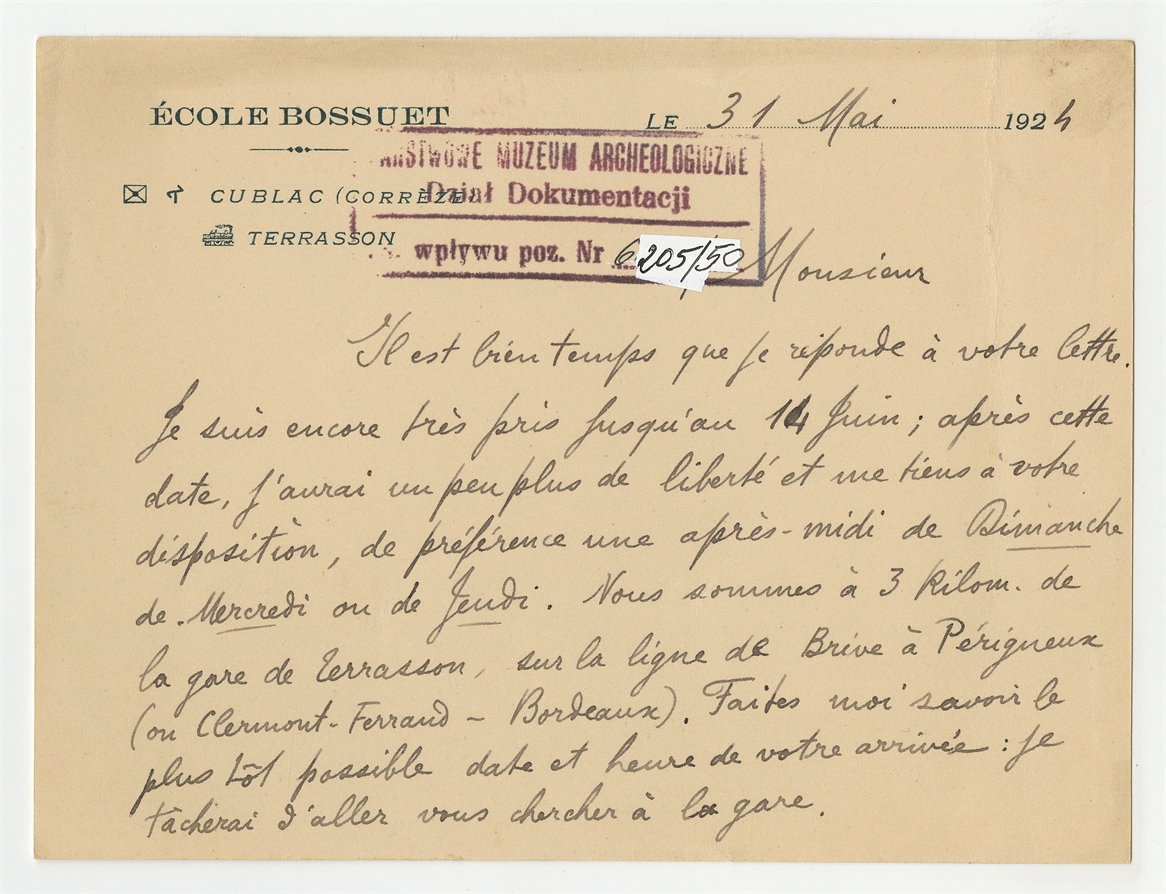 ÉCOLE BOSSUET
LE 31 Mai 1924
CUBLAC (CORRÈZE)
TERRASSON
PAŃSTWOWE MUZEUM ARCHEOLOGICZNE
Dział Dokumentacji
wpływu poz. Nr 6205/50
Monsieur
Il est bien temps que je réponde à votre lettre.
Je suis encore très pris jusqu'au 14 Juin ; après cette
date, j'aurai un peu plus de liberté et me tiens à votre
disposition, de préférence une après-midi de Dimanche
de Mercredi ou de Jeudi. Nous sommes à 3 Kilom. de
la gare de Terrasson, sur la ligne de Brive à Périgueux
(ou Clermont-Ferrand - Bordeaux). Faites moi savoir le
plus tôt possible date et heure de votre arrivée : je
tâcherai d'aller vous chercher à la gare.